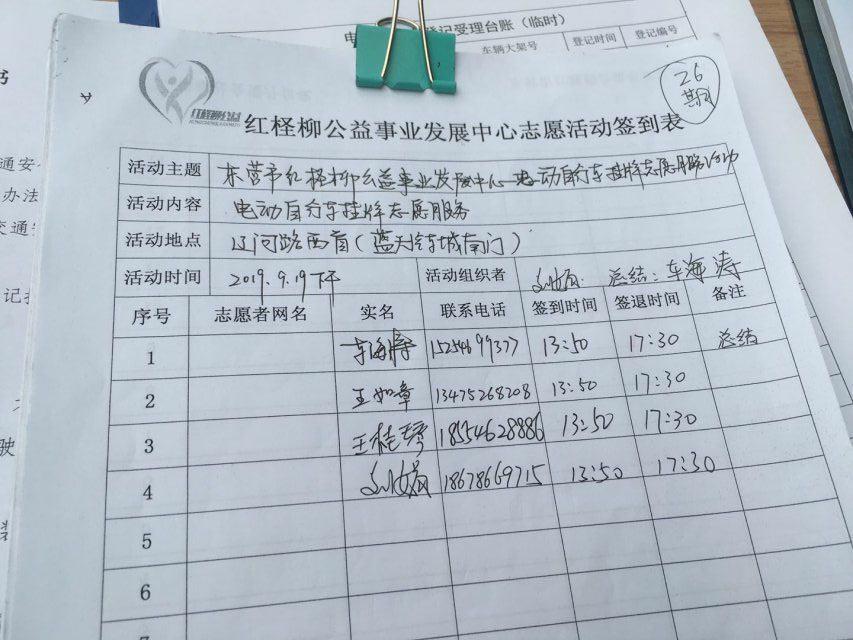 登记受理台账（临时）
车辆大架号 登记时间 登记编号
书
通安
办法
交通安
记
驶
装
26期
红柽柳公益
红柽柳公益事业发展中心志愿活动签到表
活动主题 东营市红柽柳公益事业发展中心电动自行车挂牌志愿服务
活动内容 电动自行车挂牌志愿服务
活动地点 辽河路西首（蓝天车城南门）
活动时间 2019.9.19下午 活动组织者 总结：车海涛
序号 志愿者网名 实名 联系电话 签到时间 签退时间 备注
1 车海涛 15254699377 13:50 17:30 总结
2 王如章 13475268208 13:50 17:30
3 王桂琴 18554628886 13:50 17:30
4 18678669715 13:50 17:30
5
6